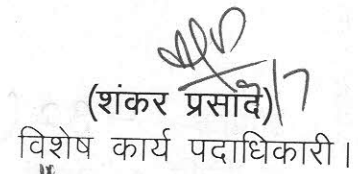 (शंकर प्रसाद)
विशेष कार्य पदाधिकारी।